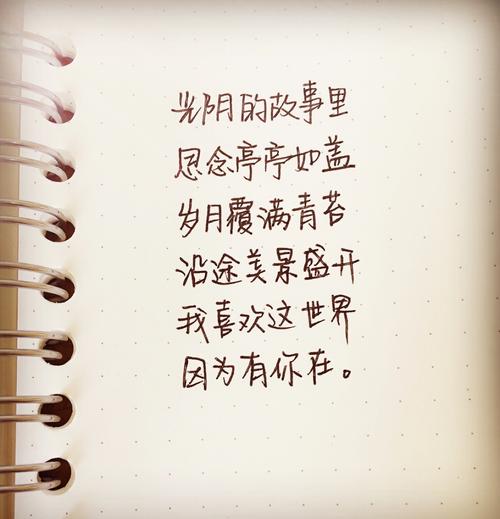 光阴的故事里
思念亭亭如盖
岁月覆满青苔
沿途美景盛开
我喜欢这世界
因为有你在。